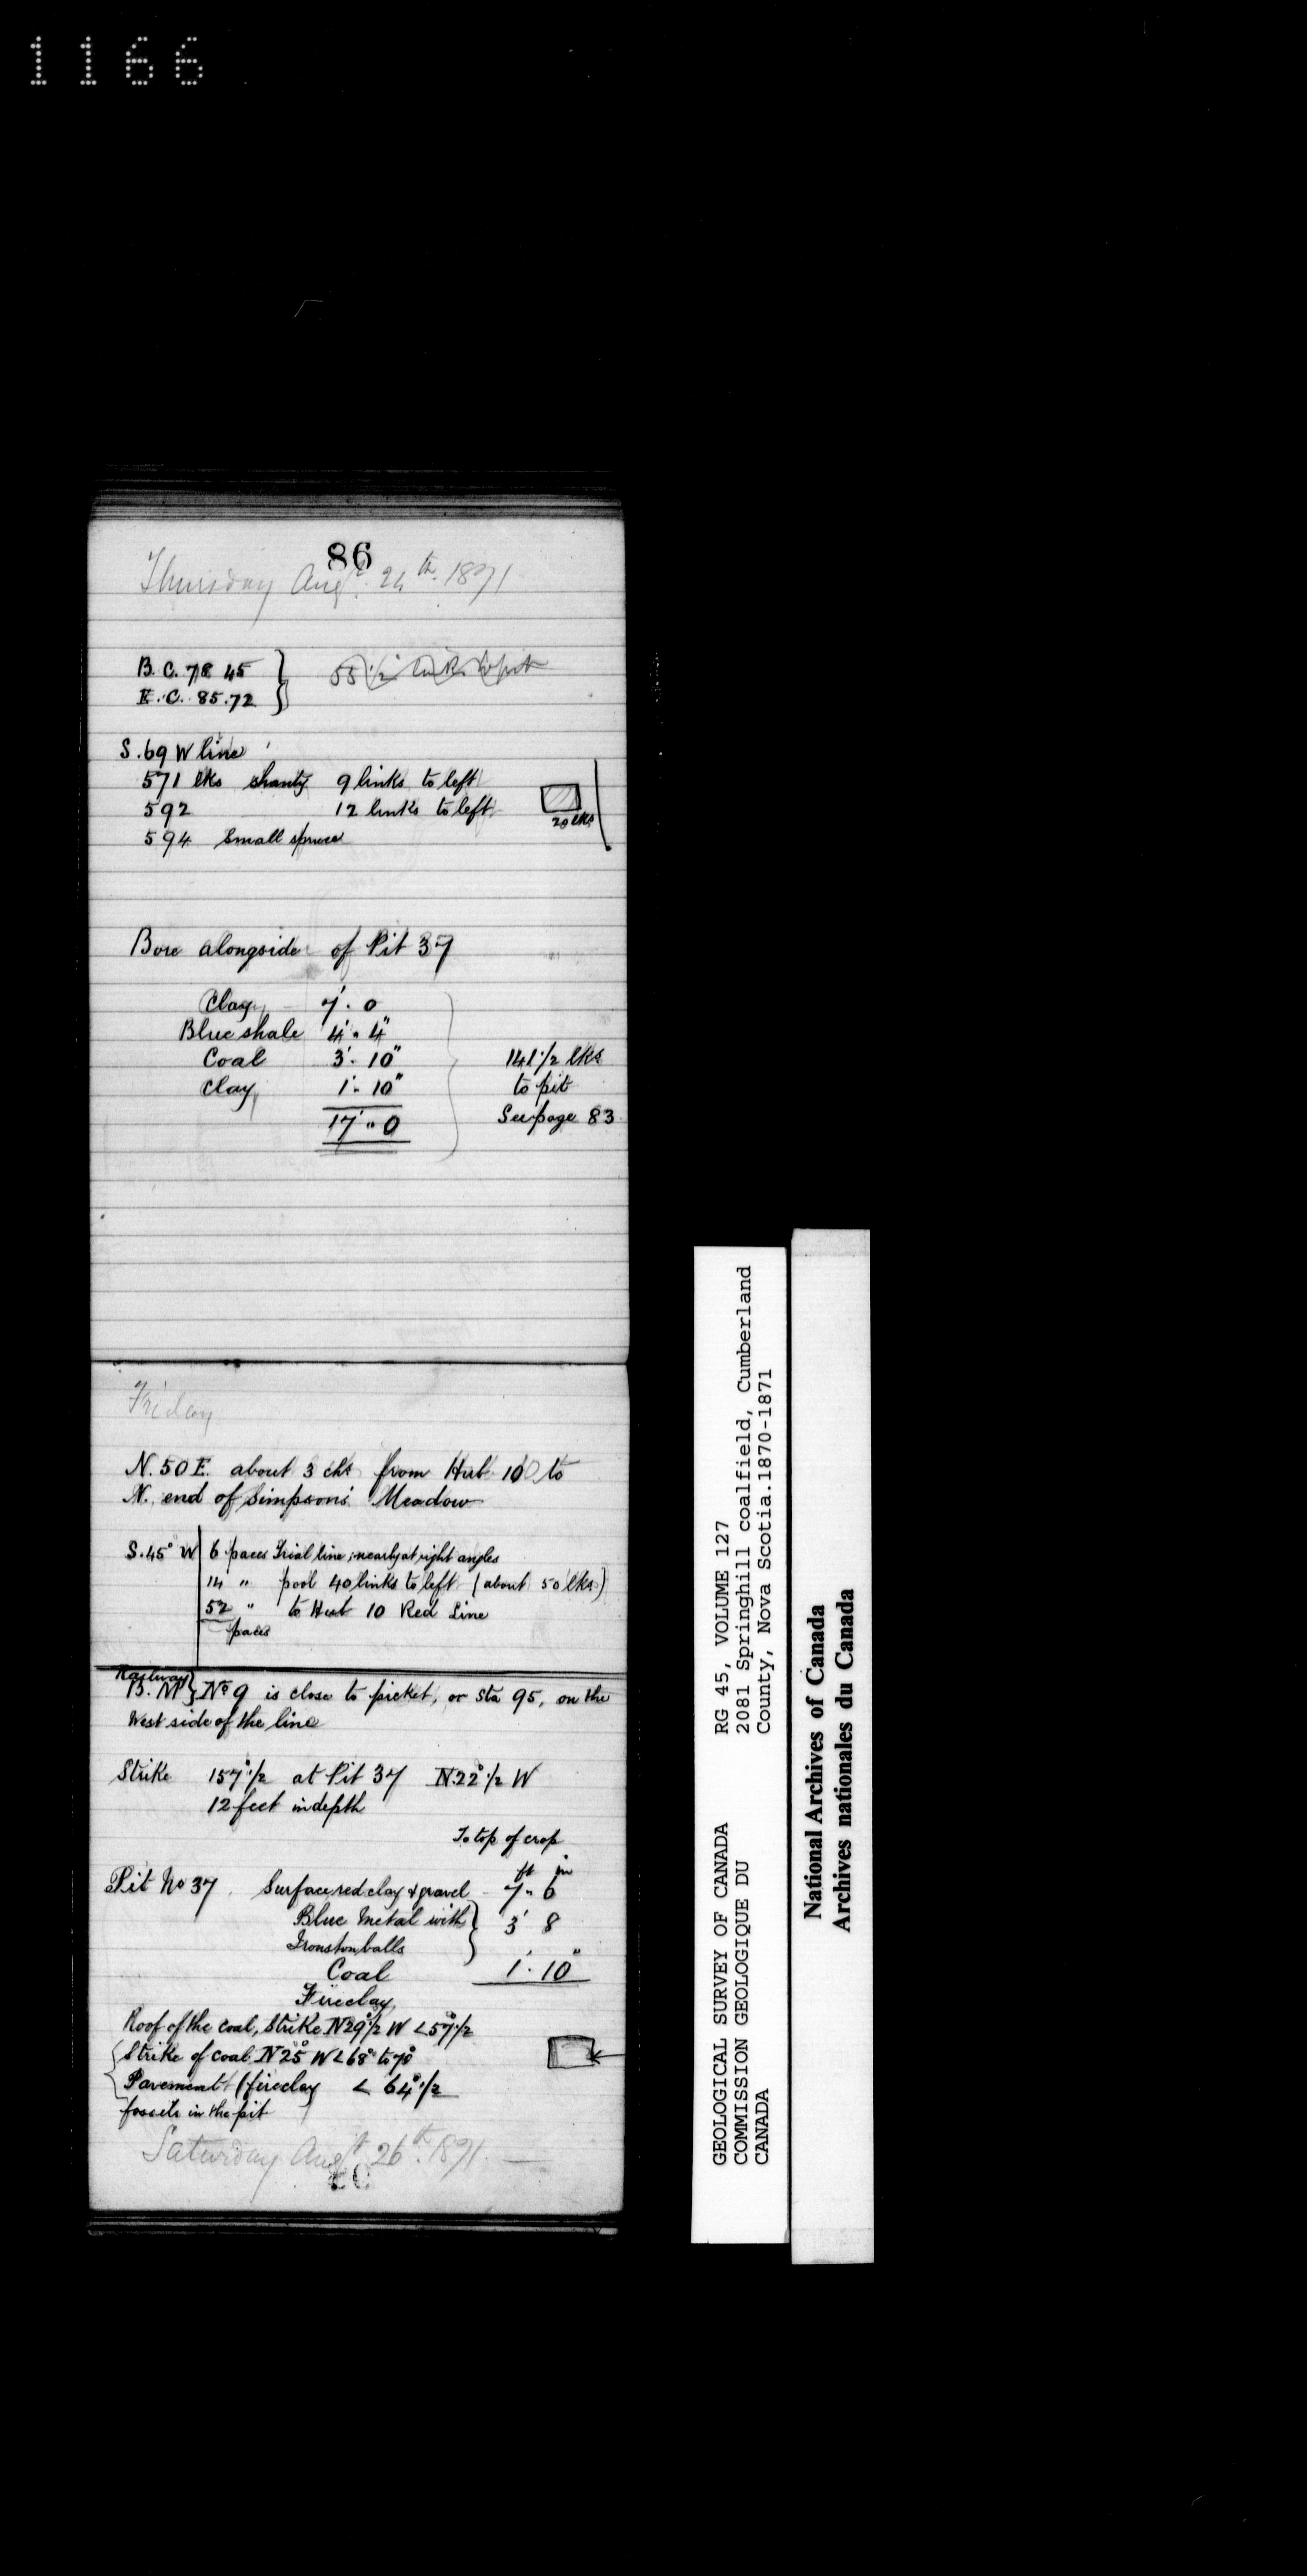 1166
86
Thursday Augt. 24th. 1871
B. C. 78 45
E. C. 85.72
55 1/2 links to pit
S. 69 W line
571 lks shanty 9 links to left
592 12 links to left
20 lks
594 Small spruce
Bore alongside of Pit 37
Clay 7'. 0
Blue shale 4'. 4"
Coal 3'. 10" 141 1/2 lks
Clay 1'. 10" to pit
17'. 0 See page 83
Friday
N. 50 E. about 3 chs from Hub 10 to
N. end of Simpsons' Meadow
S. 45° W 6 paces Trial line; nearly at right angles
14 " pool 40 links to left (about 50 lks)
52 " to Hub 10 Red Line
paces
Railway
B. M } No 9 is close to picket, or Sta 95, on the
West side of the line
Strike 157° 1/2 at Pit 37 N. 22° 1/2 W
12 feet in depth
To top of crop
ft in
Pit No 37. Surface, red clay & gravel 7. 6
Blue Metal with } 3' 8
Ironstone balls
Coal 1'. 10"
Fireclay
Roof of the coal, Strike N 29° 1/2 W < 57° 1/2
Strike of coal N 25° W < 68° to 70°
Pavement (fireclay < 64° 1/2
fossils in the pit
Saturday Augt 26th. 1871.
GEOLOGICAL SURVEY OF CANADA RG 45, VOLUME 127
COMMISSION GEOLOGIQUE DU 2081 Springhill coalfield, Cumberland
CANADA County, Nova Scotia.1870-1871
National Archives of Canada
Archives nationales du Canada